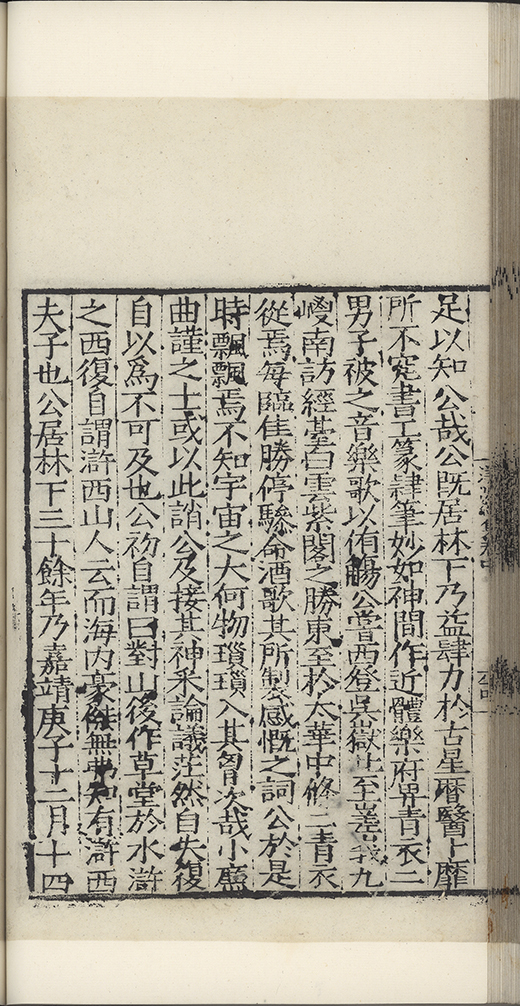 足以知公哉公既居林下乃益肆力於古星曆醫卜靡
所不究書工篆隸筆妙如神間作近體樂府畀青衣二
男子被之音樂歌以侑觴公嘗西登吳嶽北至嵳峩九
嵕南訪經臺白雲紫閣之勝東至於太華中條二青衣
從焉每臨佳勝停驂命酒歌其所製感慨之詞公於是
時飄飄焉不知宇宙之大何物瑣瑣入其胷次哉小廉
曲謹之士或以此誚公及接其神采論議茫然自失復
自以爲不可及也公初自謂曰對山後作草堂於水滸
之西復自謂滸西山人云而海内豪傑無弗知有滸西
夫子也公居林下三十餘年乃嘉靖庚子十二月十四